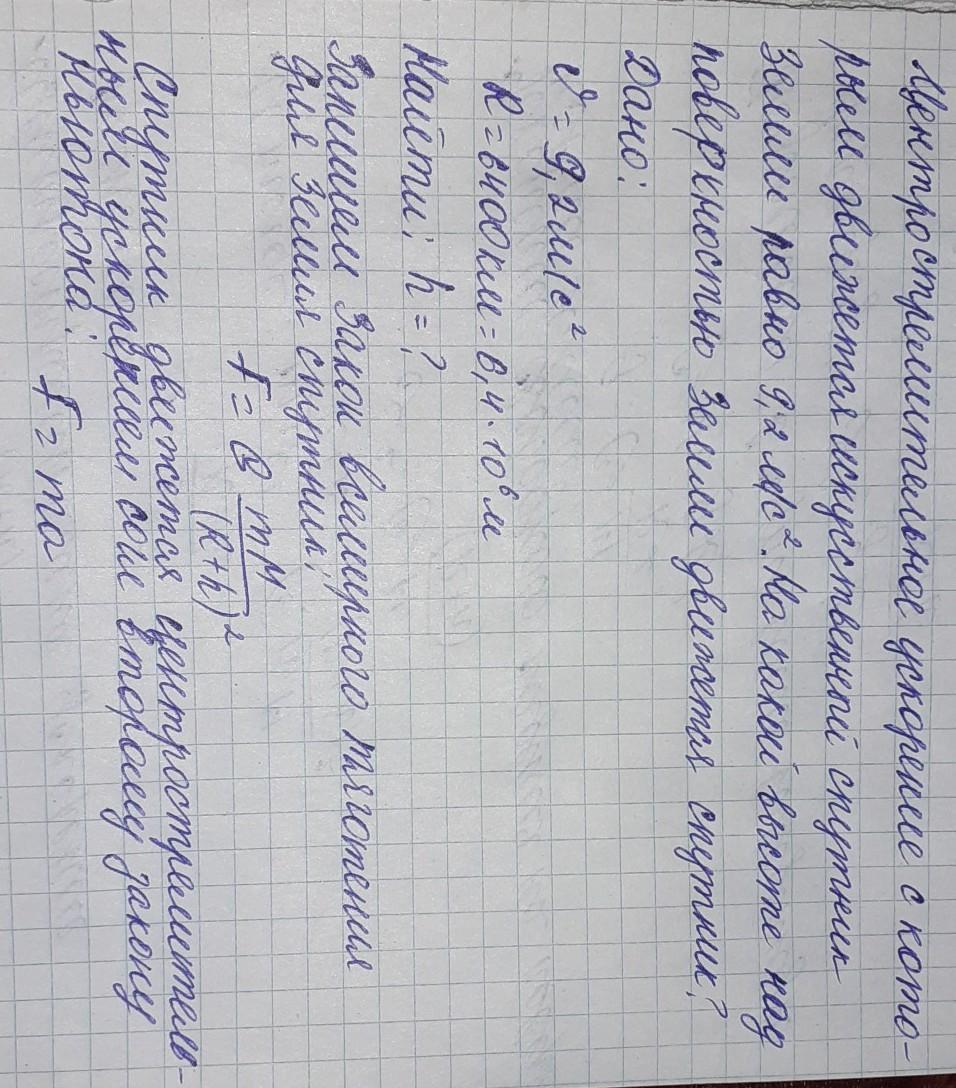 Центростремительное ускорение с кото-
рым движется искуственный спутник
Земли равно 9,2 м/с². На какой высоте над
поверхностью Земли движется спутник?
Дано:
υ = 9,2 м/с²
R = 6400 км = 6,4 · 10⁶ м
Найти: h = ?
Запишем Закон всемирного тяготения
для Земля спутник:
F = G mM/(R+h)²
Спутник движется центростремитель-
ным ускорением согл второму закону
Ньютона:
F = ma